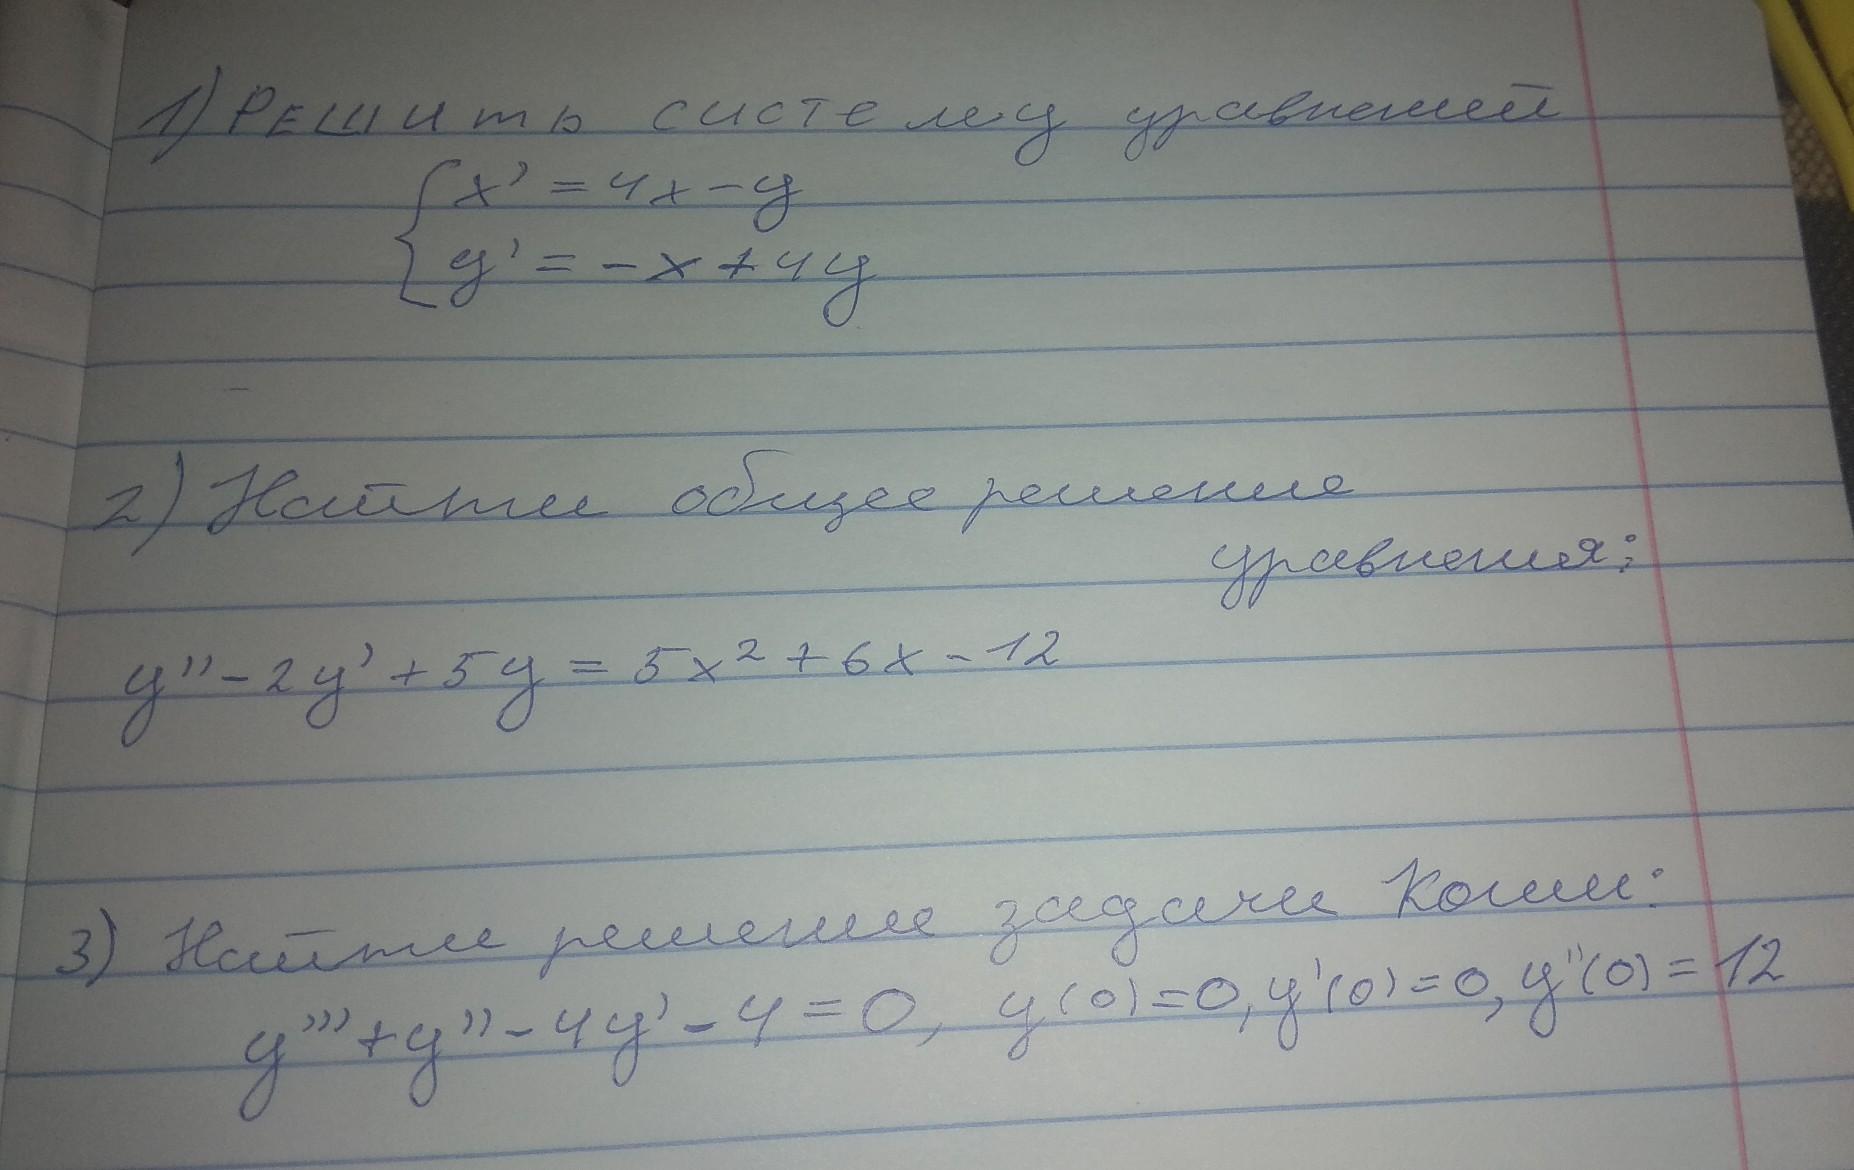 1) Решить систему уравнений
{x' = 4x - y
y' = -x + 4y
2) Найти общее решение
уравнения:
y'' - 2y' + 5y = 5x² + 6x - 12
3) Найти решение задачи Коши:
y''' + y'' - 4y' - 4 = 0, y(0) = 0, y'(0) = 0, y''(0) = 12